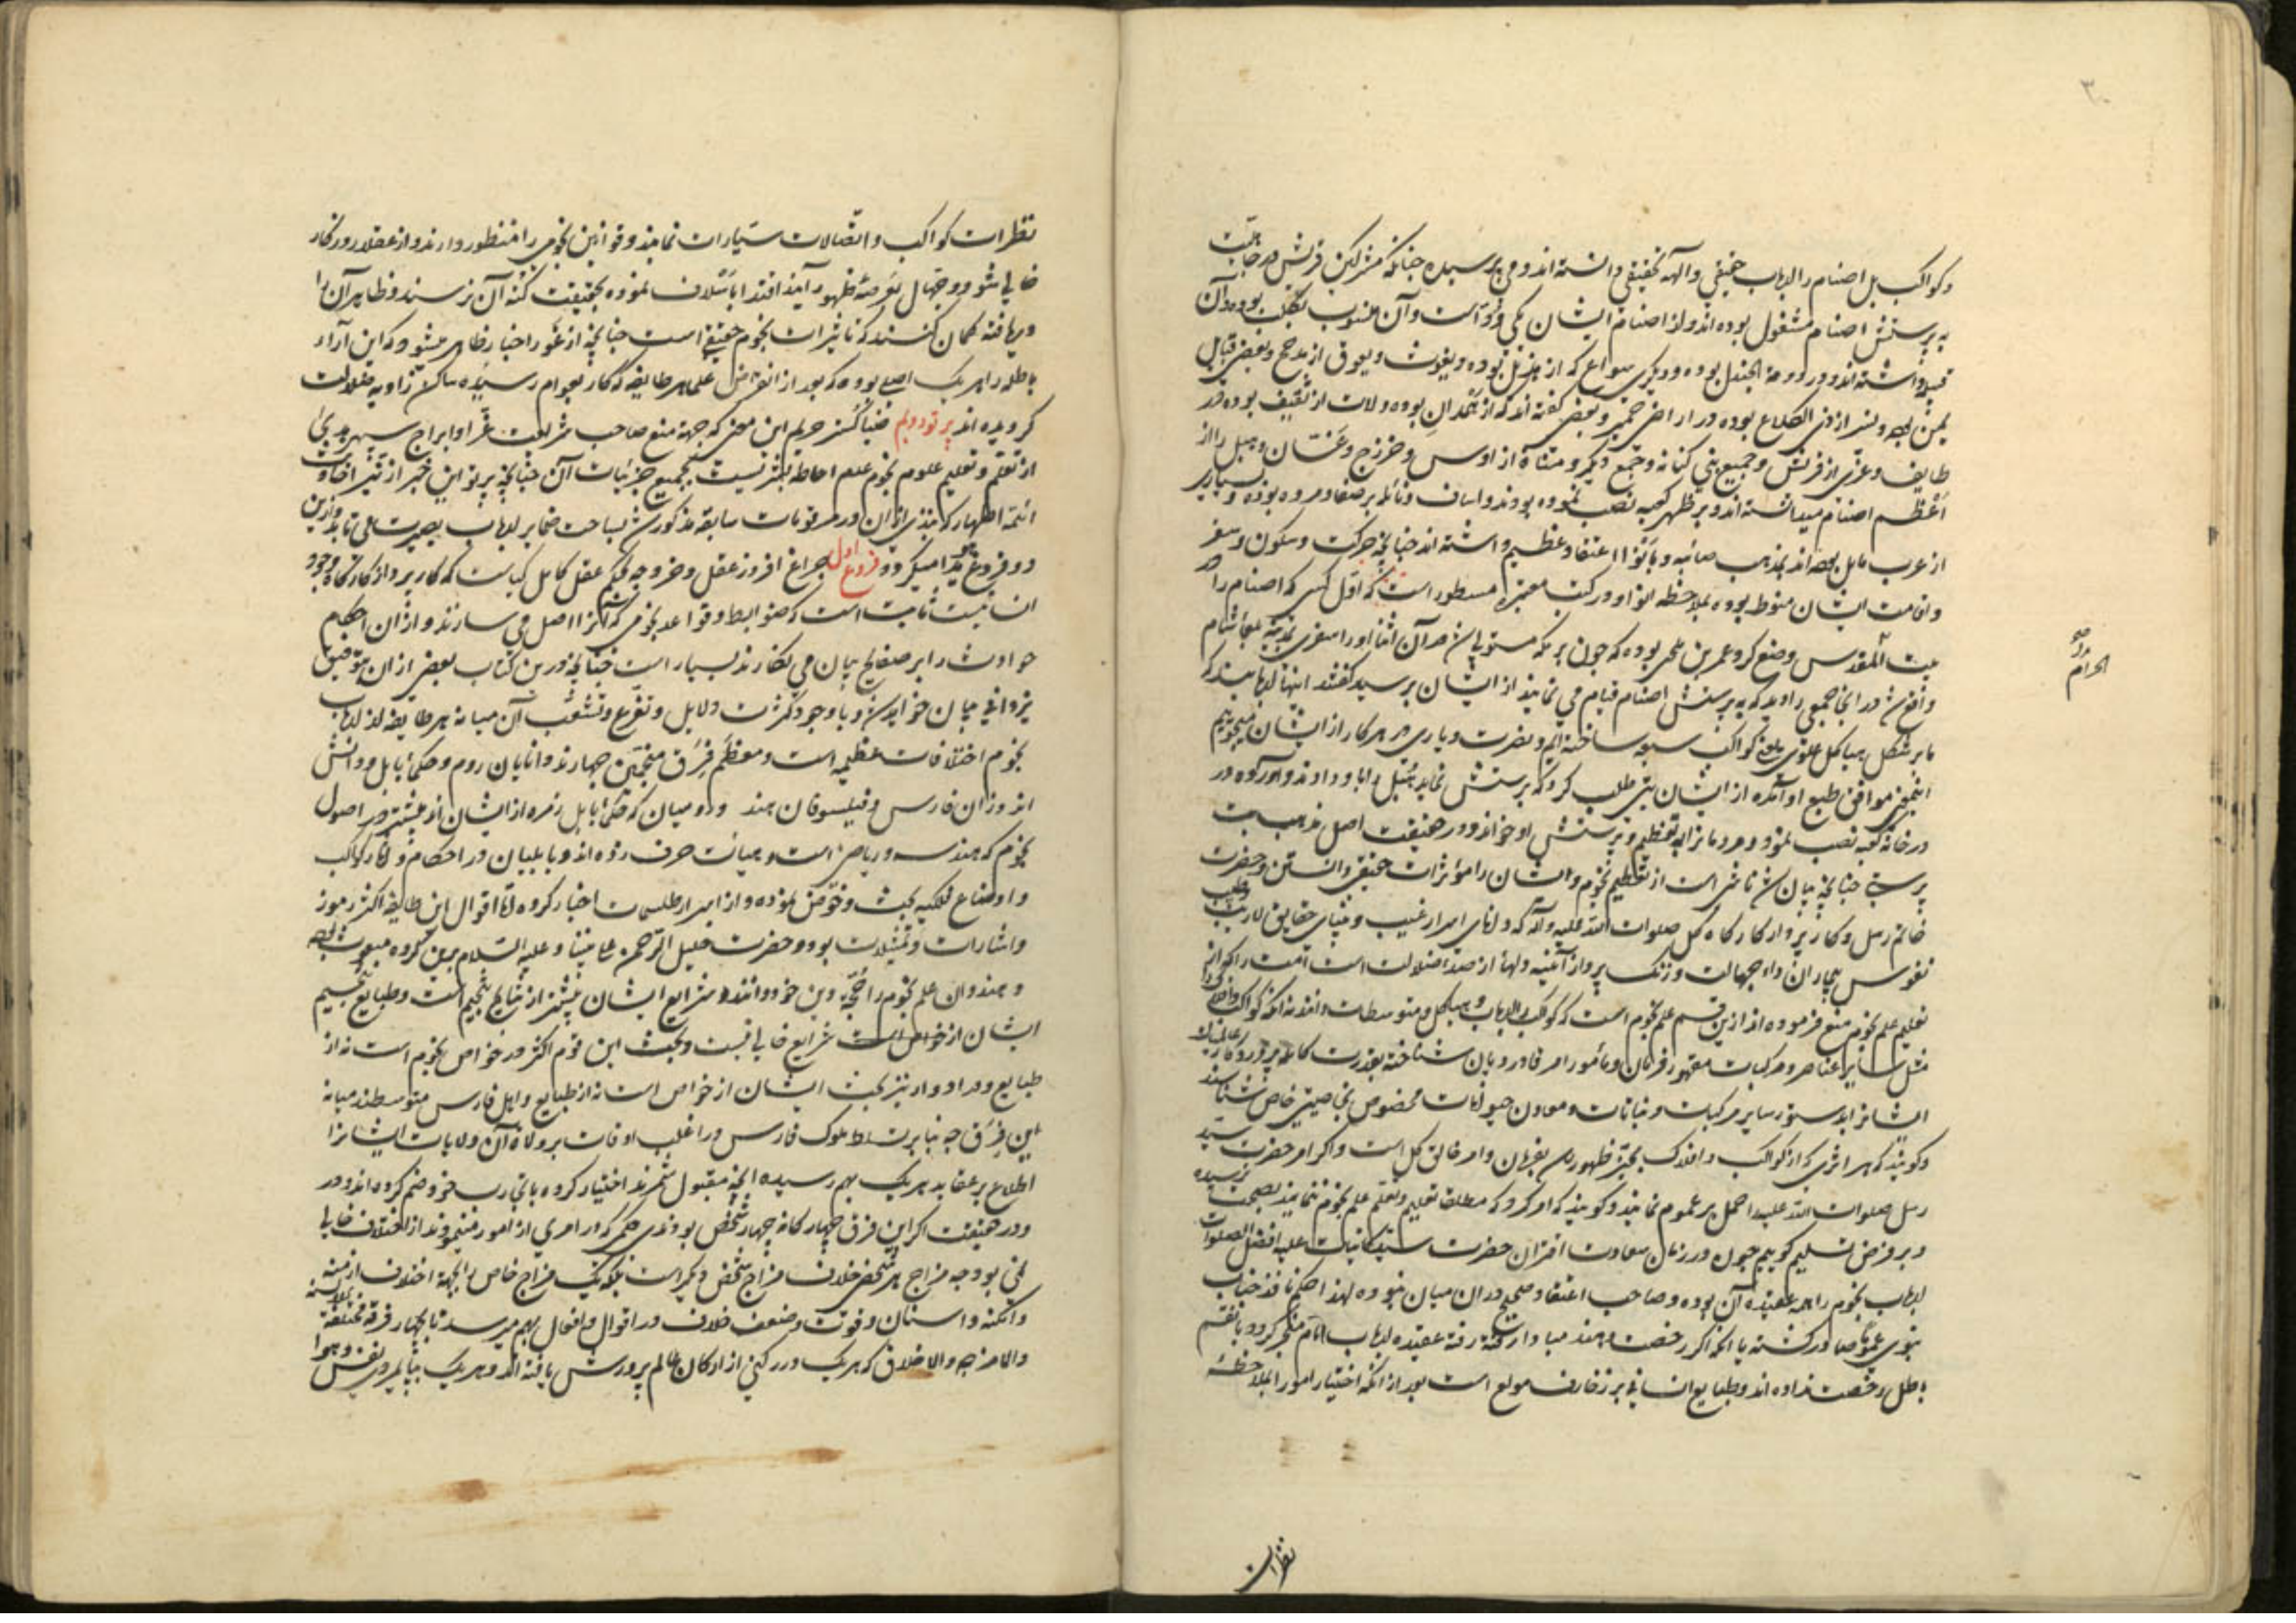 ۳۰
وکواکب بل اصنام را ارباب حقیقی و آلهه تحقیقی دانسته اند و می پرسیده چنانکه مشرکین قریش در جاهلیت
به پرستش اصنام مشغول بوده اند و از اصنام ایشان یکی ود است و آن منسوب بکلب بوده و آن
قبیله داشته اند و در دومة الجندل بوده و دیگری سواع که از هذیل بوده و یغوث و یعوق از مذحج و بعضی قبایل
یمن بوده و نسر از ذی الکلاع بوده در اراضی حمیر و بعضی گفته اند که از همدان بوده و لات از ثقیف بوده در
طایف و عزی از قریش و جمیع بنی کنانه و جمع دیگر و مناة از اوس و خزرج و غسان و هبل را از
اعظم اصنام میدانسته اند و بر ظهر کعبه نصب نموده بودند و اساف و نائله بر صفا و مروه بوده و بسیاری
از عرب مایل بوده اند بمذهب صائبه و بانواء اعتقاد عظیم داشته اند چنانچه حرکت و سکون و سفر
و اقامت ایشان منوط بوده بملاحظه انواء و در کتب معتبره مسطور است که اول کسی که اصنام را در
بیت المقدس وضع کرد عمر بن لحی بوده که چون بر مکه مستولی شد در آن اثنا او را سفری بمدینه بلقا شام
الحرام
واقع شد در انجا جمعی را دید که به پرستش اصنام قیام می نمایند از ایشان پرسید گفتند اینها اربابیند که
ما بر شکل هیاکل علوی یعنی کواکب سبعه ساخته ایم و نصرت و یاری در هر کار از ایشان میجوییم
اینمعنی موافق طبع او آمده از ایشان بتی طلب کرد که پرستش نماید هبل را باو دادند و آورده در
در خانه کعبه نصب نمود و مردمانرا به تعظیم و پرستش او خواند و در حقیقت اصل مذهب بت
پرستی چنانچه بیان شد ناشی است از تعظیم نجوم و ایشان را مؤثرات حقیقی دانستن و حضرت
خاتم رسل و کارپرداز کارگاه کل صلوات الله علیه وآله که دانای اسرار غیب و بینای حقایق لاریب
نفوس بیماران داء جهالت و زنگ پرداز آئینه دلها از صداء ضلالت است امت را که از
تعلیم علم نجوم منع فرموده اند ازین قسم علم نجوم است که کواکب را ارباب و هیاکل و متوسطات دانند نه آنکه کواکب را
مثل سایر عناصر و مرکبات مقهور فرمان و مأمور امر قادر دیان شناخته بقدرت کامله پروردگار
ایشانرا بدستور سایر مرکبات و نباتات و معادن حیوانات مخصوص بخاصیتی خاص شناسند
و گویند که هر اثری که از کواکب و افلاک بحیز ظهور رسد بفرمان و امر خالق کل است و اگر امر حضرت سید
رسل صلوات الله علیه احمل بر عموم نمایند و گویند که امر کرد که مطلقا تعلیم و تعلم علم نجوم ننمایند بصحت نرسیده
و بر فرض تسلیم گوییم چون در زمان سعادت اقتران حضرت سید کاینات علیه افضل الصلوات
ارباب نجوم را همه عقیده آن بوده و صاحب اعتقاد صحیح در ان میان نبوده لهذا حکم نافذ جناب
نبوی عموما صادر گشته یا انکه اگر رخصت دهند مبادا رفته رفته عقیده ارباب انام منجر گردد بانقسم
باطل رخصت نداده اند و طبایع انسانی بر زخارف مولع است بعد از انکه اختیار امور را بملاحظه
نظرات
نظرات کواکب و اتصالات سیارات نمایند و قوانین نجومی را منظور دارند و از عقلا روزگار
خالی شود و جهال بعرصه ظهور آیند اقتدا باسلاف نموده بحقیقت کنه آن نرسند و ظاهر آن را
دریافته گمان کنند که تاثیرات نجوم حقیقی است چنانچه از غور اخبار ظاهر میشود که این آراء
باطله را هر یک اصلی بوده که بعد از انقراض علما هر طایفه که کار بعوام رسیده ساکن زاویه ضلالت
گردیده اند پرتو دویم ضیاگستر حریم این معنی که جهة منع صاحب شریعت غرا و ابراج سپهر هدی
از تعلم و تعلیم علوم نجوم عدم احاطه بشر نیست بجمیع جزئیات آن چنانچه پرتو این خبر از نیر افادت
ائمه اطهار که نبذی از ان در مرقومات سابقه مذکور شد بساحت ضمایر ارباب بصیرت می تابد و ازین
دو فروغ پیدا میگردد فروغ اول چراغ افروز عقل و خرد و حکیم عقل کامل کیاست که کارپرداز کارگاه وجود
انسانیست ثابت است که ضوابط و قواعد نجومی که انرا اصل می سازند و از ان احکام
حوادث را بر صفایح بیان می نگارند بسیار است چنانچه درین کتاب بعضی از ان بتوفیق
یزدانی بیان خواهد شد و با وجود کثرت دلایل و تفرع و تشعب آن میانه هر طایفه از ارباب
نجوم اختلافات عظیمه است و معظم فرق منجمین چهارند دانایان روم و حکماء بابل و دانش
اندوزان فارس و فیلسوفان هند و رومیان که حکماء بابل زمره از ایشان اند بیشتر در اصول
نجوم که هندسه و ریاضی است و هیأت حرف زده اند و بابلیان در احکام و آثار کواکب
و اوضاع فلکیه بحث و خوض نموده و از اسرار طلسمات اخبار کرده اما اقوال این طایفه اکثر رموز
و اشارات و تمثیلات بود و حضرت خلیل الرحمن علی نبینا و علیه السلام برین گروه مبعوث بوده
و هندوان علم نجوم را حجة دین خود دانند و شرایع ایشان بیشتر از نتایج تنجیم است و طبایع تنجیم
ایشان از خواص است شرایع خالی نیست و بحث این قوم اکثر در خواص نجوم است نه از
طبایع و در ادویه نیز بحث ایشان از خواص است نه از طبایع و اهل فارس متوسطند میانه
این فرق چه بنا بر تسلط ملوک فارس در اغلب اوقات بر ولاة آن ولایات ایشانرا
اطلاع بر عقاید هر یک بهم رسیده انچه مقبول شمرند اختیار کرده باقی رسد خود ضم کرده اند و در
و در حقیقت اگر این فرق چهارگانه چهار شخص بودندی حکمی که در امری از امور مینمودند از اختلاف خالی
نمی بود چه مزاج هر شخصی خلاف مزاج شخص دیگر است بلکه یک مزاج خاص را بجهة اختلاف ازمنه
و امکنه و اسنان و قوت و ضعف خلاف در اقوال و افعال بهم میرسد تا بچهار فرقه مختلفة
والامزجه والاخلاق که هر یک در رکنی از ارکان عالم پرورش یافته اند و هر یک پیروی نفس و هوا